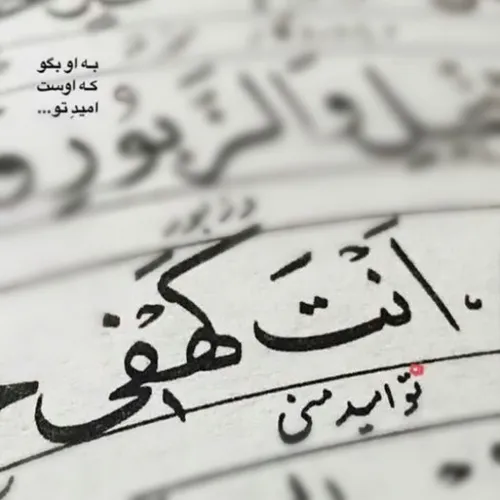 به او بگو
که اوست
امیدِ تو...
وَالزَّبُورِ
و زبور
اَنْتَ كَهْفي
تو امید منی